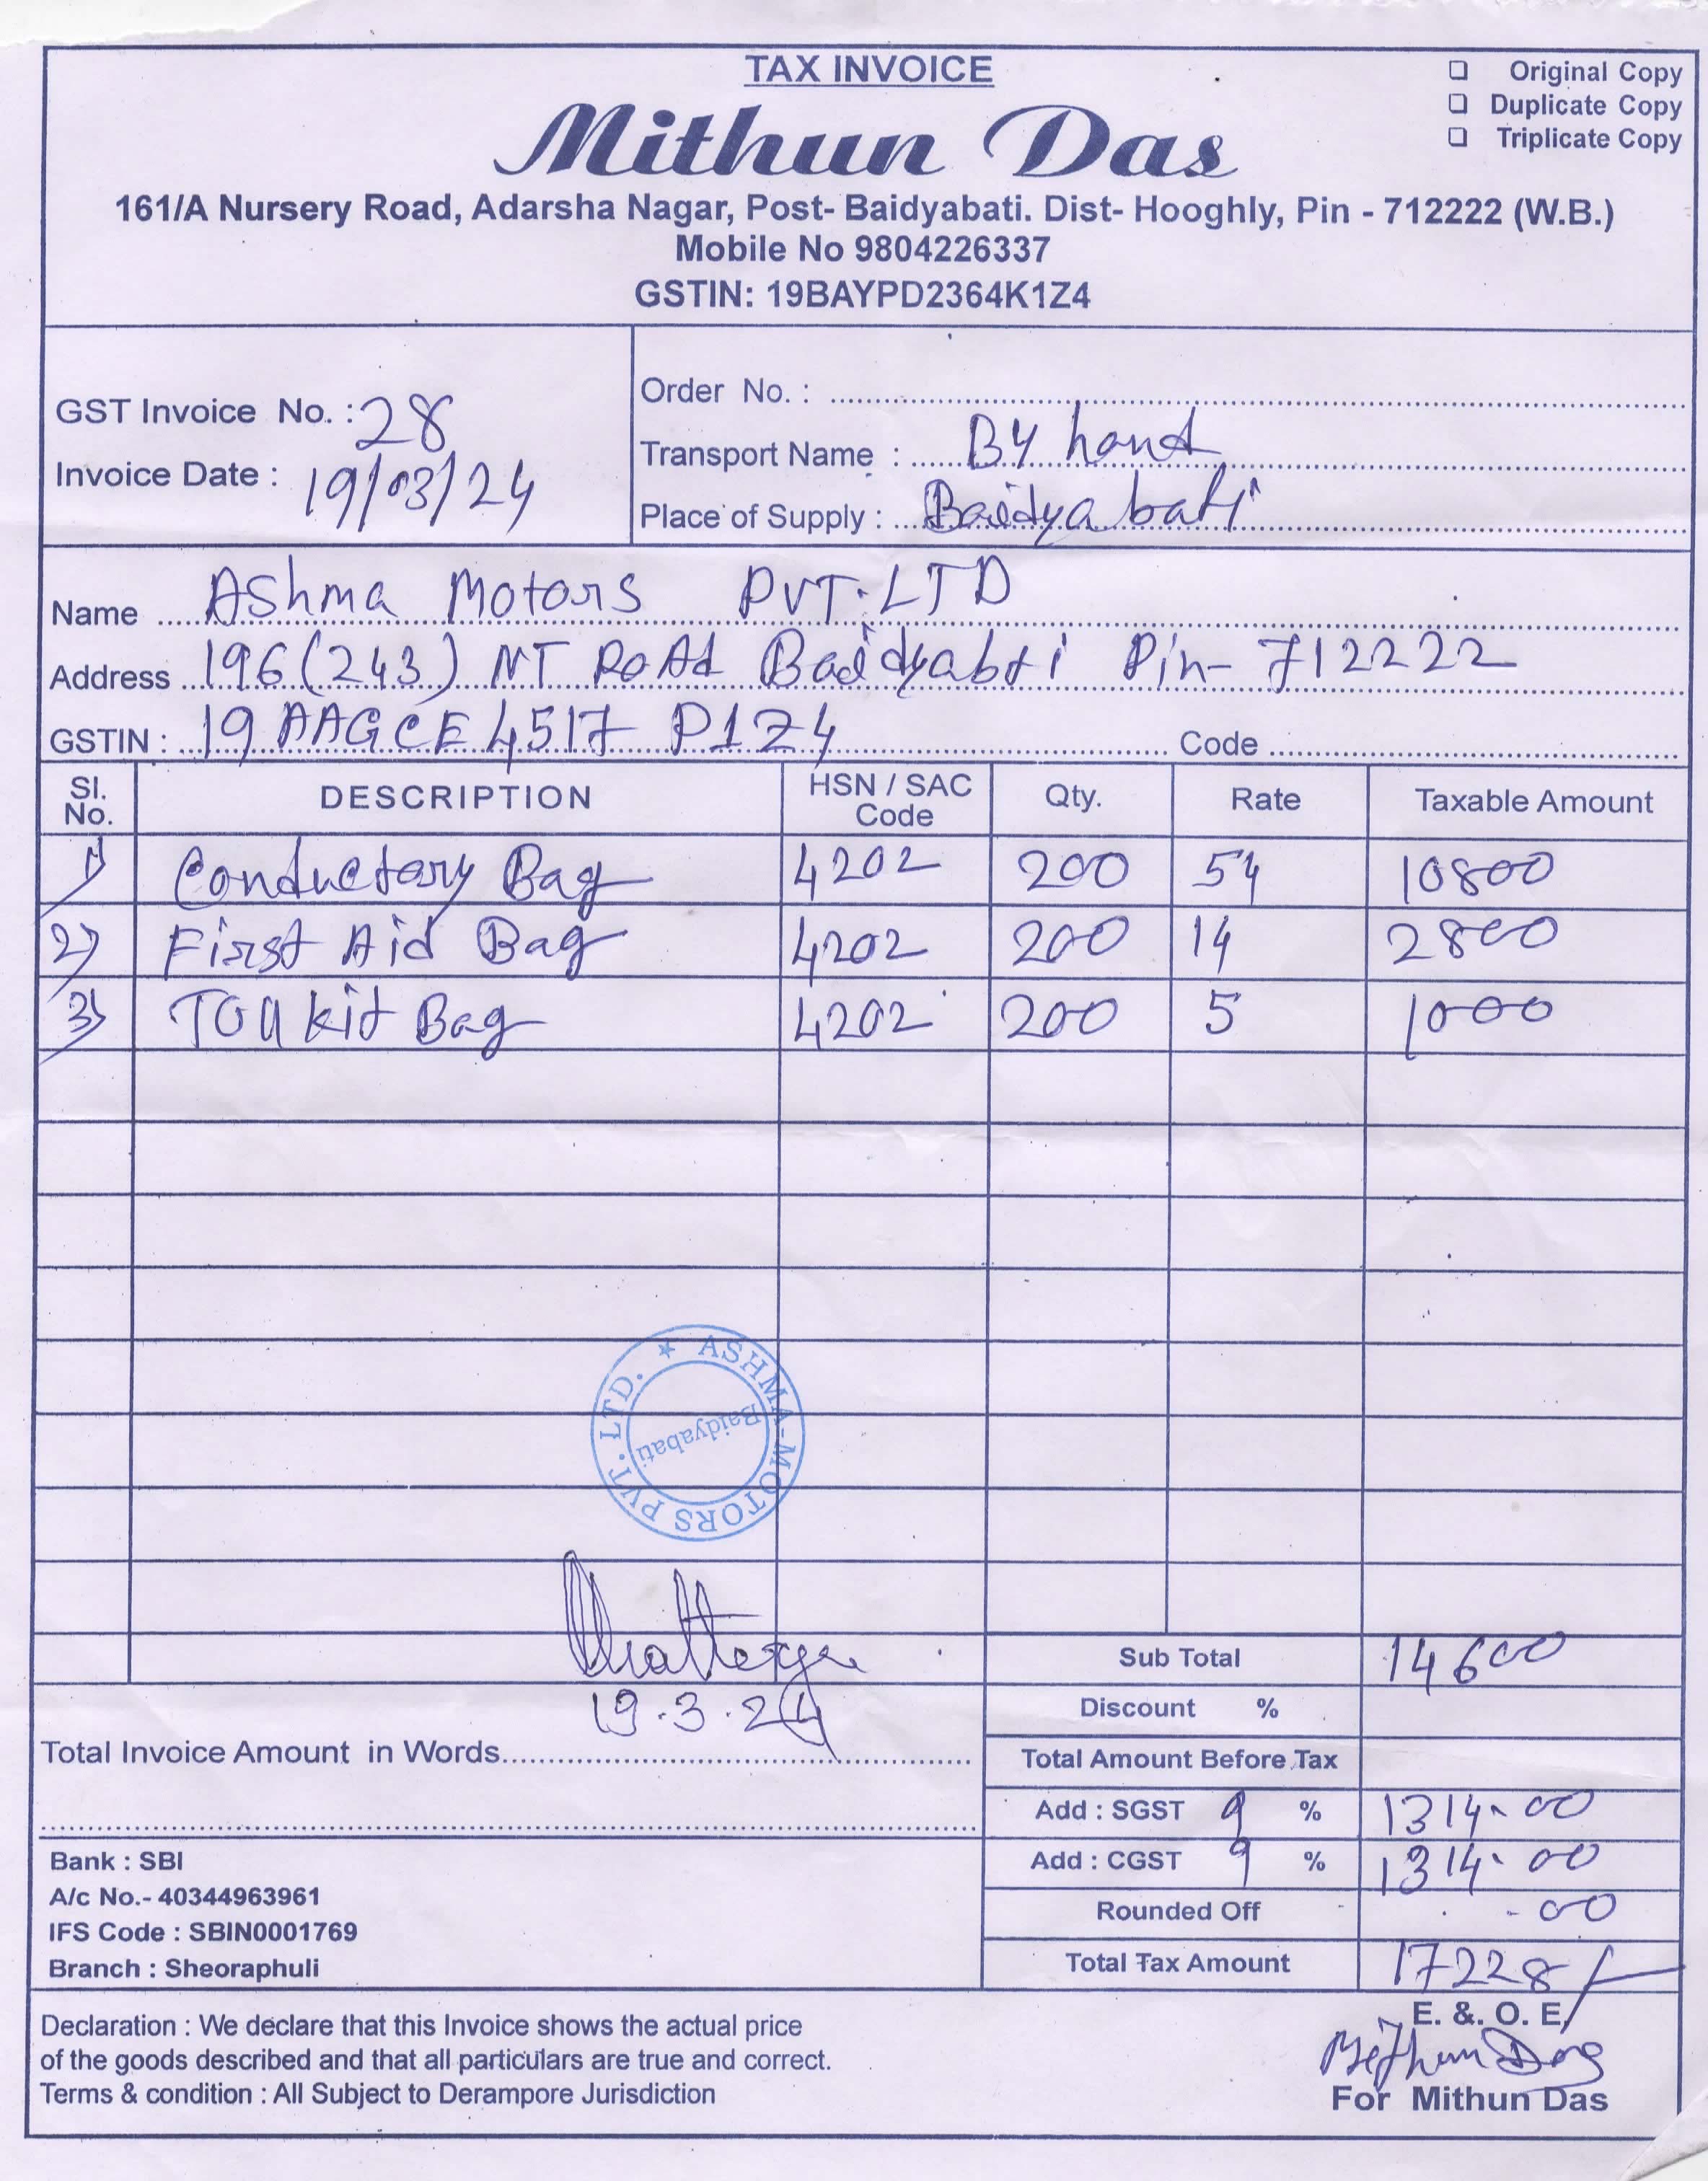 TAX INVOICE
Original Copy
Duplicate Copy
Triplicate Copy
Mithun Das
161/A Nursery Road, Adarsha Nagar, Post- Baidyabati. Dist- Hooghly, Pin - 712222 (W.B.)
Mobile No 9804226337
GSTIN: 19BAYPD2364K1Z4
GST Invoice No. : 28
Invoice Date : 19/03/24
Order No. :
Transport Name : By hand
Place of Supply : Baidyabati
Name Ashma Motors PVT. LTD
Address 196(243) NT Road Baidyabti Pin- 712222
GSTIN : 19AAGCE4517P1Z4 Code
Sl. No. DESCRIPTION HSN / SAC Code Qty. Rate Taxable Amount
1) Conductory Bag 4202 200 54 10800
2) First Aid Bag 4202 200 14 2800
3) Kit Bag 4202 200 5 1000
ASHMA-MOTORS PVT. LTD.
Baidyabati
Chatterjee
19.3.24
Sub Total 14600
Discount %
Total Invoice Amount in Words
Total Amount Before Tax
Add : SGST 9 % 1314.00
Add : CGST 9 % 1314.00
Rounded Off -00
Total Tax Amount 17228/-
Bank : SBI
A/c No.- 40344963961
IFS Code : SBIN0001769
Branch : Sheoraphuli
Declaration : We declare that this Invoice shows the actual price
of the goods described and that all particulars are true and correct.
Terms & condition : All Subject to Derampore Jurisdiction
E. &. O. E/
Mithun Das
For Mithun Das